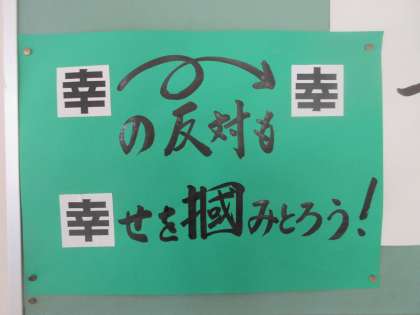 幸 幸
の反対も
幸せを掴みとろう!